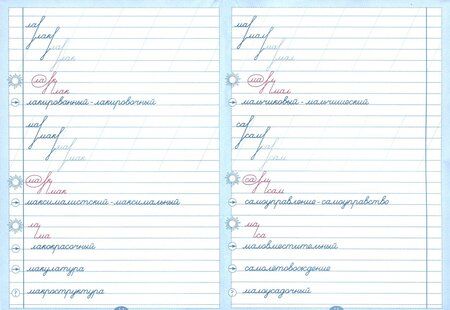 ла
лак
ла
лак
ла
лак
лакированный - лакировочный
ма
мак
ма
мак
ма
мак
максималистский - максимальный
ла
ма
лакокрасочный
макулатура
макроструктура
ма
мал
ма
мал
ма
мал
мальчиковый - мальчишеский
са
сам
са
сам
са
сам
самоуправление - самоуправство
ма
са
маловместительный
самолетовождение
малоусадочный